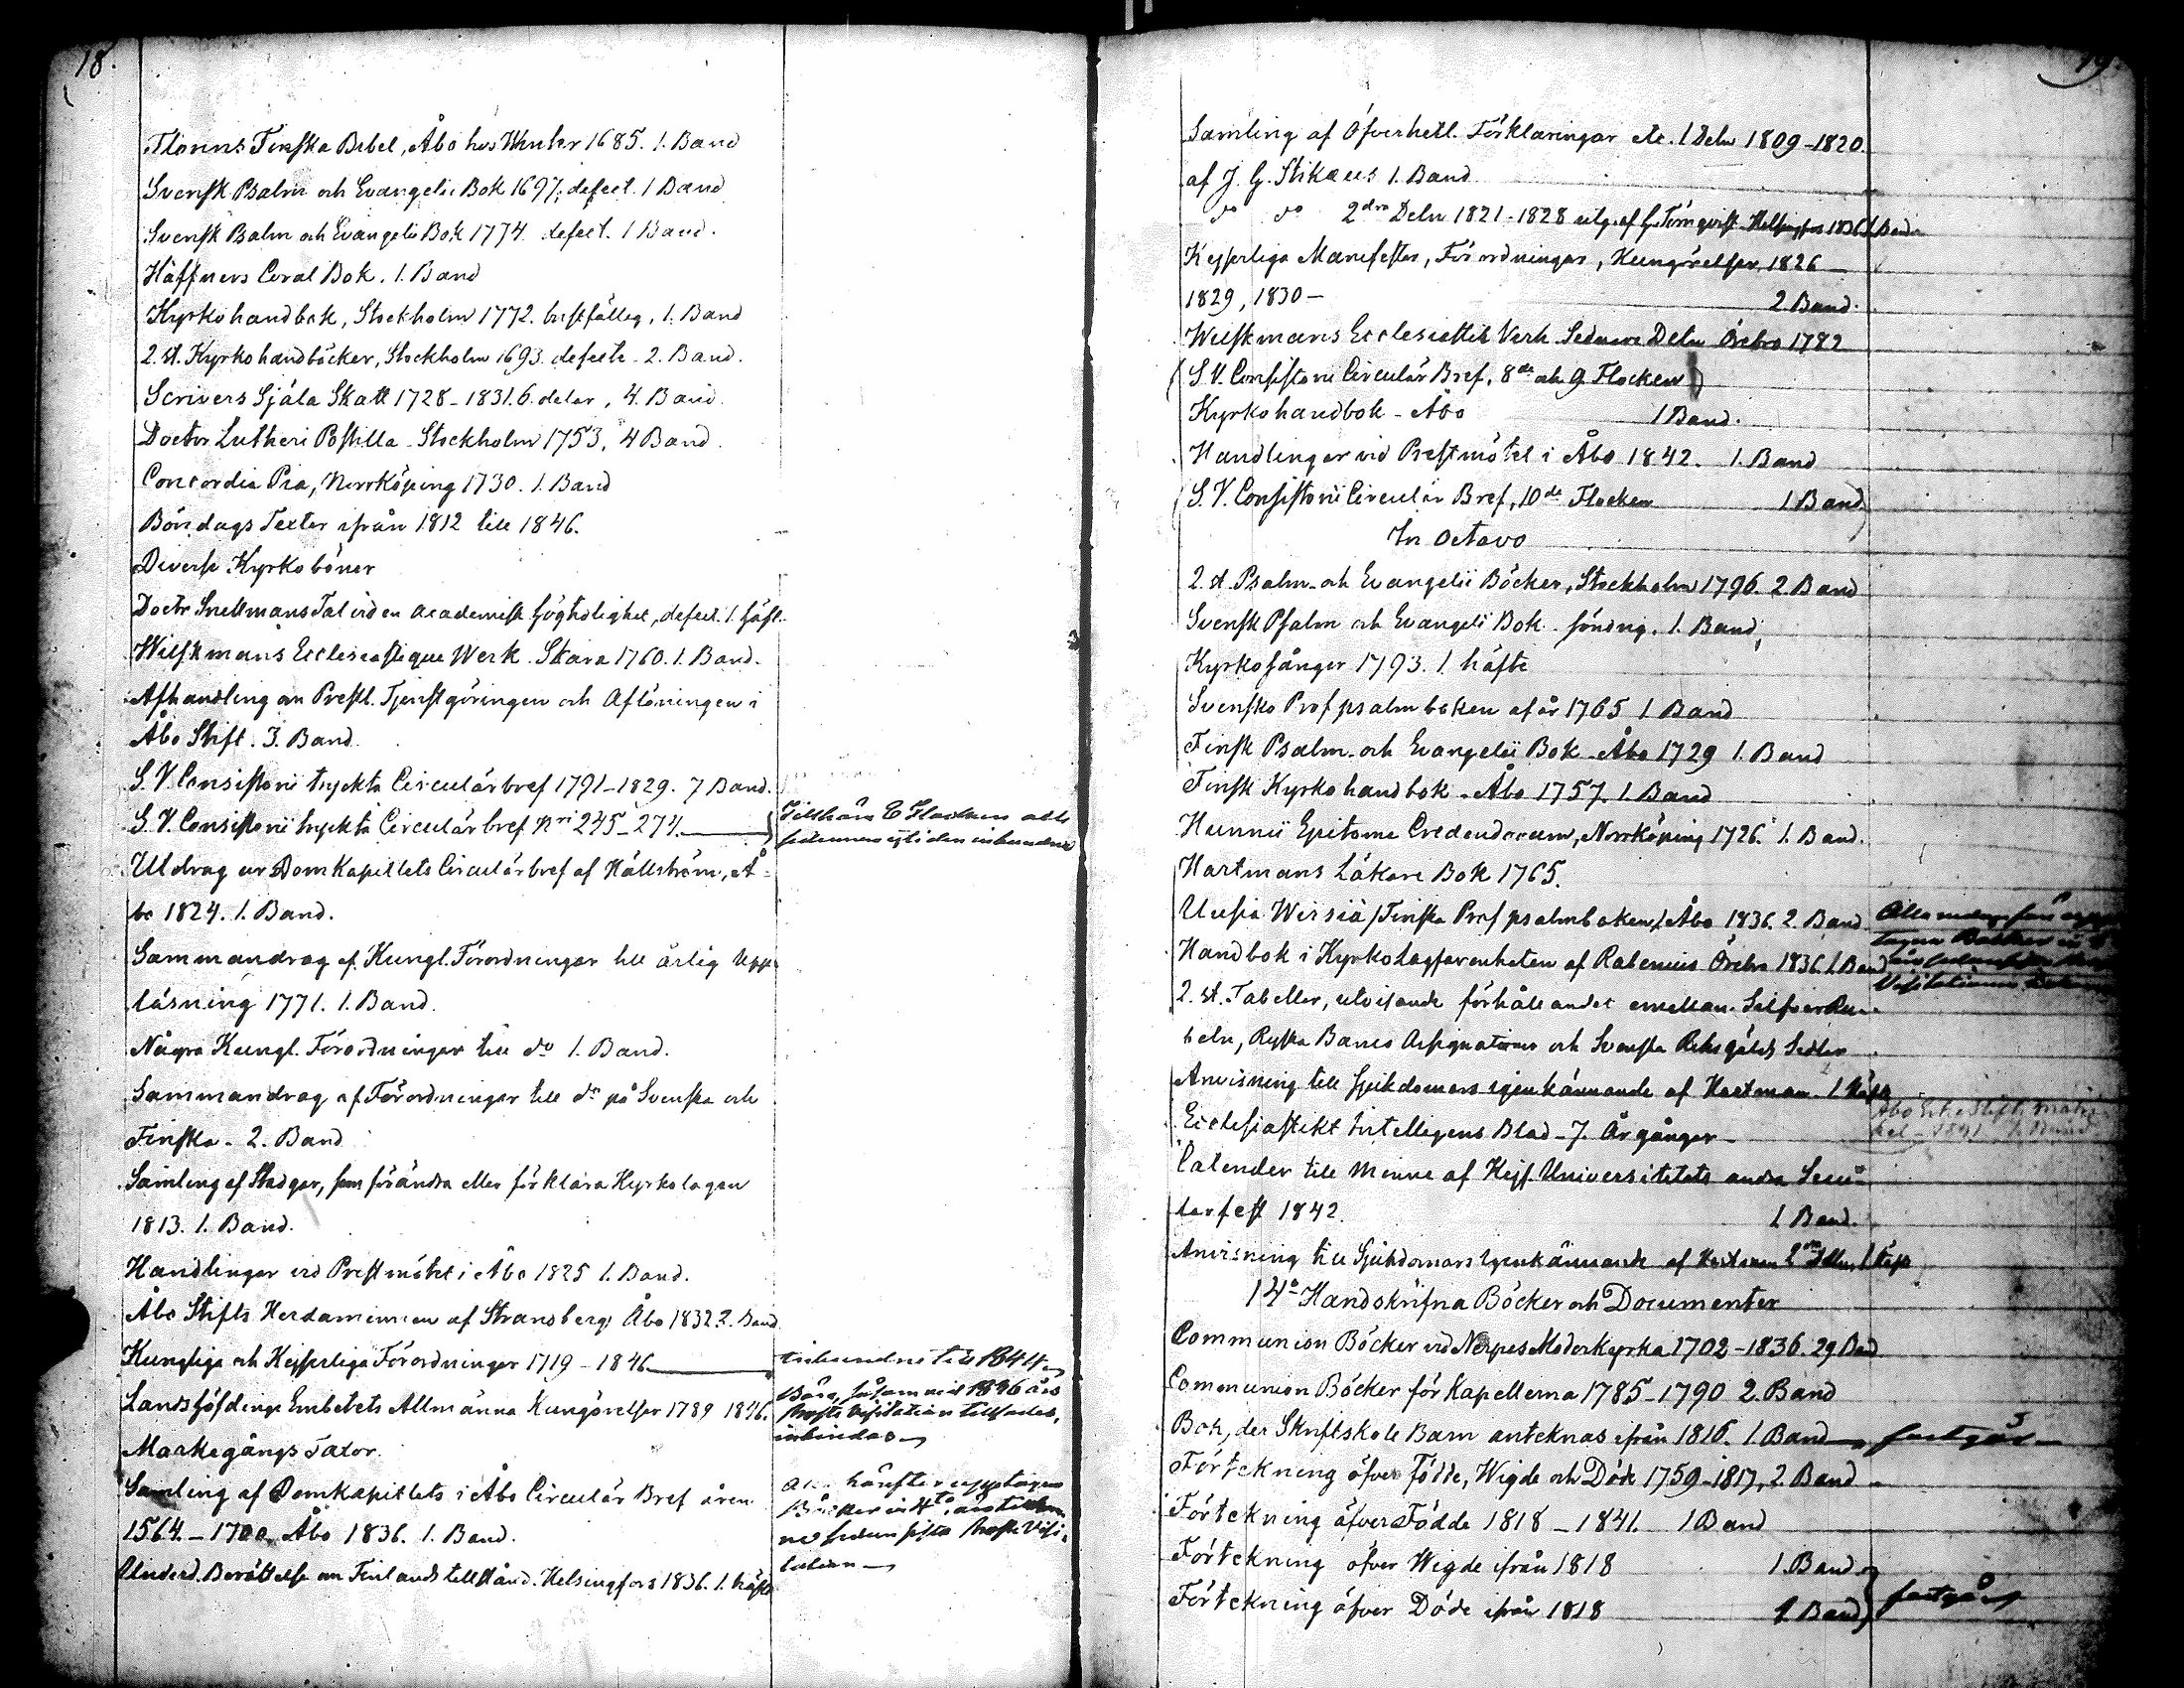 18.
Florins Finska Bibel, Åbo hos Winter 1685. 1. Band
Svensk Psalm och Evangelii Bok 1697, defect. 1 Band
Svensk Psalm och Evangelii Bok 1774 defect. 1 Band.
Häffners Coral Bok. 1. Band
Kyrkohandbok, Stockholm 1772. bristfällig, 1. Band
2. st. Kyrkohandböcker, Stockholm 1693. defecte. 2. Band.
Scrivers Själa Skatt 1728-1831. 6. delar, 4. Band.
Doctor Lutheri Postilla. Stockholm 1753, 4 Band.
Concordia Pia, Norrköping 1730. 1. Band
Böndags Texter ifrån 1812 till 1846.
Diverse Kyrkoböner
Doctr Snellmans Tal vid en academisk högtidlighet, defect. 1. häft.
Wilskmans Ecclesiastique Werk. Skara 1760. 1. Band.
Afhandling om Prestl. Tjenstgöringen och Aflöningen i
Åbo Stift. 3. Band.
S. V. Consistorii tryckta Circulärbref 1791-1829. 7 Band.
S. V. Consistorii tryckta Circulärbref Nri 245-274.
Tillhöra E Flocken
Utdrag ur Domkapitlets Circulärbref af Hällström, Å-
bo 1824. 1. Band.
Sammandrag af Kungl. Förordningar till årlig Upp-
läsning 1771. 1. Band.
Några Kungl. Förordningar till do 1. Band.
Sammandrag af Förordningar till do på Svenska och
Finska. 2. Band
Samling af Stadgar, som förändra eller förklara Kyrkolagen
1813. 1. Band.
Handlingar vid Prestmötet i Åbo 1825 1. Band.
Åbo Stifts Herdaminnen af Strandberg Åbo 1832 2. Band
Kungliga och Kejserliga Förordningar 1719-1846
inbundne till 1844
Landshöfdinge Embetets Allmänna Kungörelser 1789 1846.
Böra, såsom vid 1846 års
Prosts Visitation tillsades,
inbindas
Markegångs Taxor.
Samling af Domkapitlets i Åbo Circulär Bref åren
1564.-1700. Åbo 1836. 1. Band.
häruppå upptagne
Böcker
sedan sista Prosts Visi-
tation
Underd. Berättelse om Finlands tillstånd. Helsingfors 1836. 1. häfte
19.
Samling af Öfverhetl. Förklaringar etc. 1 Deln 1809-1820.
af J. G. Stikæus 1. Band
do do 2dra Deln 1821-1828 utg. af G. Törnqvist Helsingfors 1836 1. Band
Kejserliga Manifester, Förordningar, Kungörelser, 1826
1829, 1830- 2 Band.
Wilskmans Ecclesiastik Verk Sednare Deln Örebro 1782
S. V. Consistorii Circulär Bref, 8de och 9 Flocken
Kyrkohandbok - Åbo 1 Band.
Handlingar vid Prestmötet i Åbo 1842. 1. Band
S. V. Consistorii Circulär Bref, 10de Flocken 1 Band
In Octavo
2. st. Psalm- och Evangelii Böcker, Stockholm 1796. 2 Band
Svensk Psalm och Evangelii Bok söndrig. 1. Band,
Kyrkosånger 1793. 1. häfte
Svenska Profpsalmboken af år 1765 1 Band
Finsk Psalm- och Evangelii Bok - Åbo 1729 1. Band
Finsk Kyrkohandbok - Åbo 1757. 1. Band
Hunnii Epitome Credendorum, Norrköping 1726. 1. Band.
Hartmans Läkare Bok 1765.
Uusia Wirsiä /Finska Profpsalmboken/ Åbo 1836. 2. Band
Handbok i Kyrkolagfarenheten af Rabenius Örebro 1836. 1. Band
2. st. Tabeller, utvisande förhållandet emellan Silfver Ru-
beln, Ryska Banco Assignationer och Svenska Riksgälds Sedlar
Anvisning till Sjukdomars igenkännande af Hartman. 1 Häfte
Ecclesiastikt Intelligens Blad - 7. Årgångar
Calender till minne af Kejs. Universitetets andra Secu-
larfest 1842. 1 Band.
Anvisning till Sjukdomars igenkännande af Hartman 2dra Deln, 1 häft
14o Handskrifna Böcker och Documenter
Communion Böcker vid Nerpes Moderkyrka 1702-1836. 29 Band
Communion Böcker för Kapellerna 1785-1790 2. Band
Bok, der Skriftskole Barn anteknas ifrån 1816. 1. Band fortgår
Förtekning öfver Födde, Wigde och Döde 1759-1817, 2. Band
Förtekning öfver Födde 1818-1841. 1 Band
Förtekning öfver Wigde ifrån 1818 1. Band
Förtekning öfver Döde ifrån 1818 1 Band
fortgår